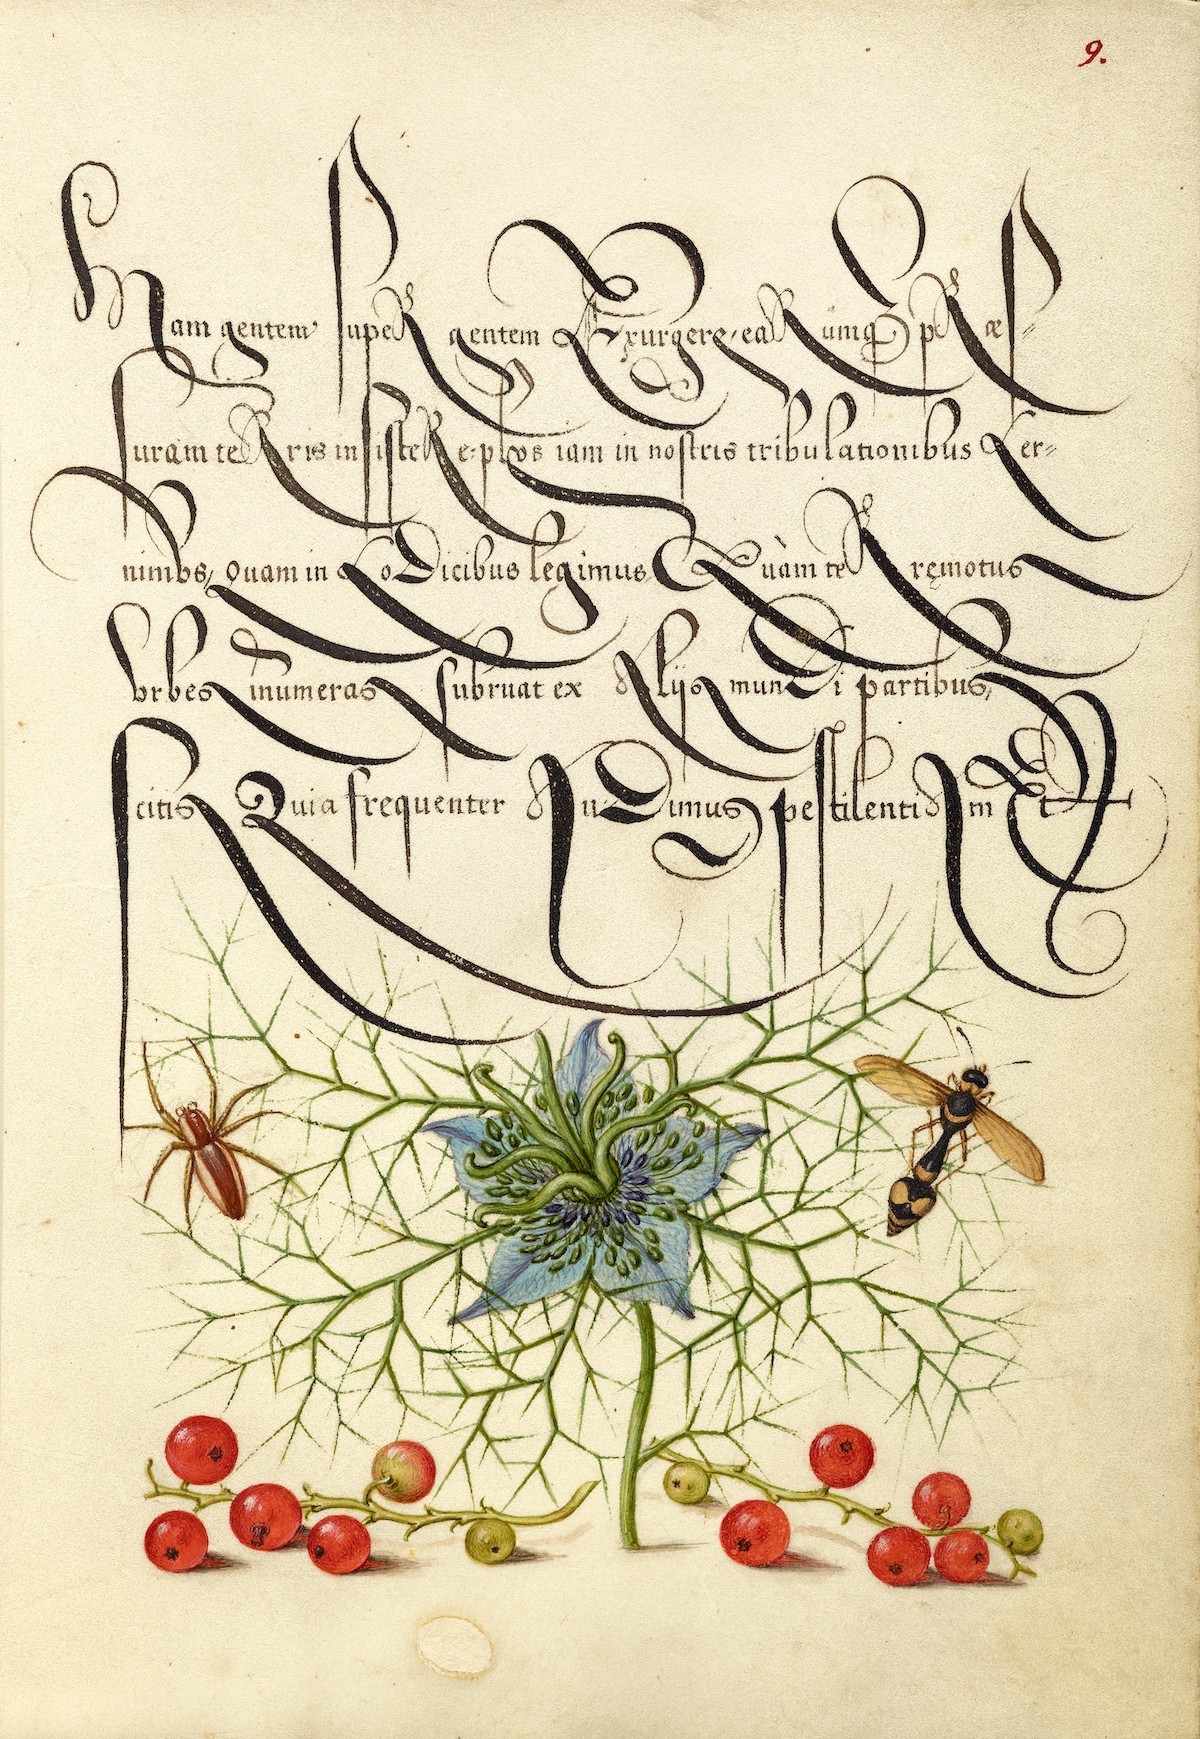 9.
Nam gentem super gentem Exurgere, earumq́ præs=
suram terris insistere, plus iam in nostris tribulationibus Cer=
nimvs, Quam in Codicibus legimus Quàm terręmotus
vrbes inumeras subruat ex Alijs mundi partibus,
scitis Quia frequenter Audimus pestilentiam Et